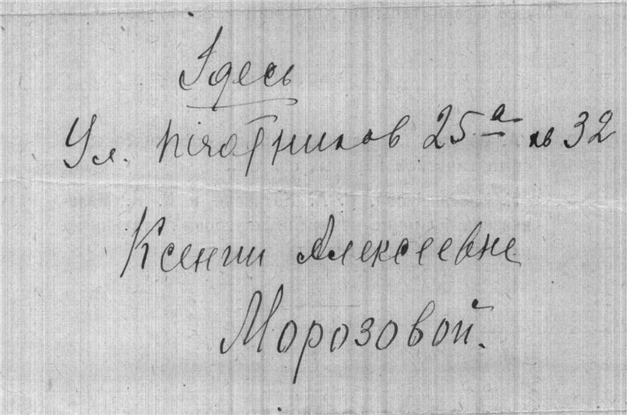 Здесь
Ул. Печатников 25а кв 32
Ксении Алексеевне
Морозовой.